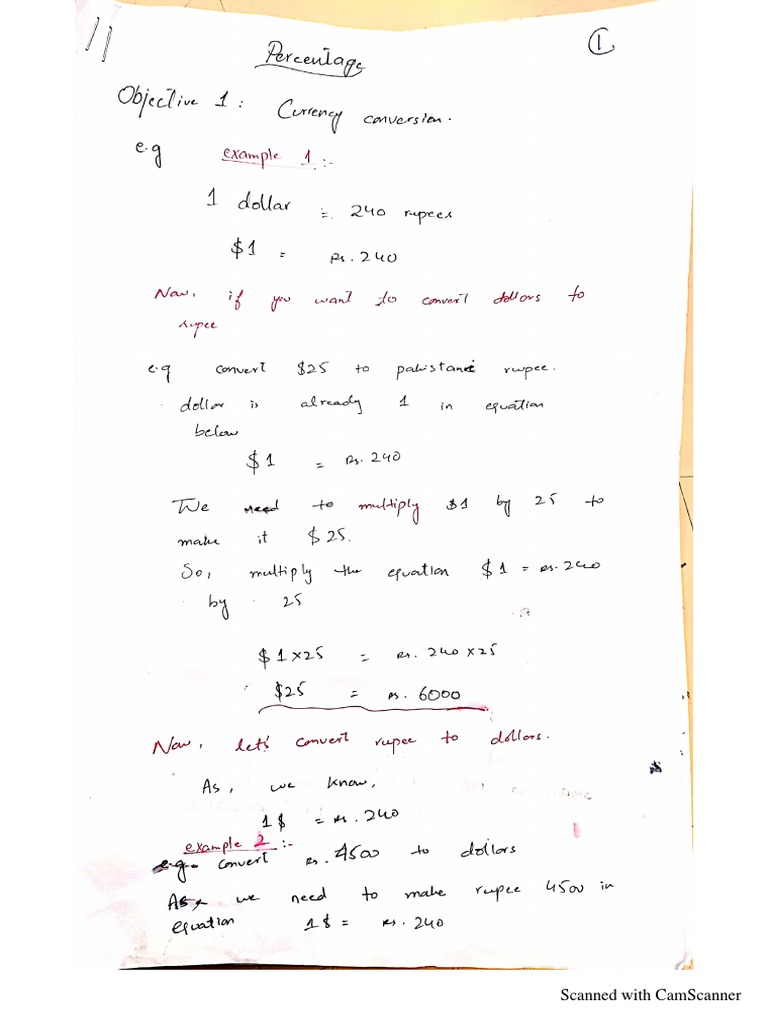 11
Percentage
1
Objective 1 : Currency conversion.
e.g example 1 :-
1 dollar = 240 rupees
$1 = Rs. 240
Now, if you want to convert dollors to
rupee
e.g convert $25 to pakistani rupee.
dollar is already 1 in equation
below
$1 = Rs. 240
We need to multiply $1 by 25 to
make it $25.
So, multiply the equation $1 = Rs. 240
by 25
$1 x 25 = Rs. 240 x 25
$25 = Rs. 6000
Now, let's convert rupee to dollors.
As, we know,
1$ = Rs. 240
example 2 :-
e.g. convert Rs. 4500 to dollors
As, we need to make rupee 4500 in
equation 1$ = Rs. 240
Scanned with CamScanner